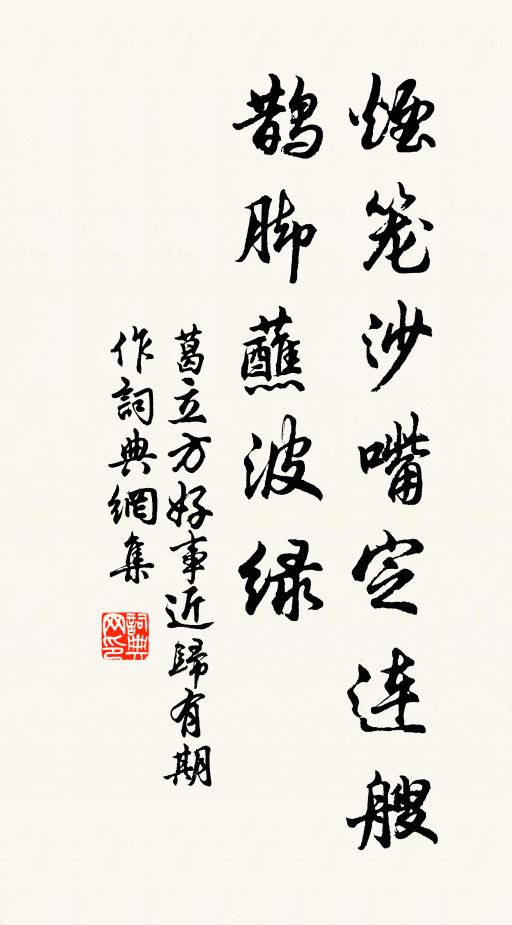 煙笼沙嘴定连艘
鹊脚蘸波绿
葛立方好事近歸有期
作詞典網集
詞典网印